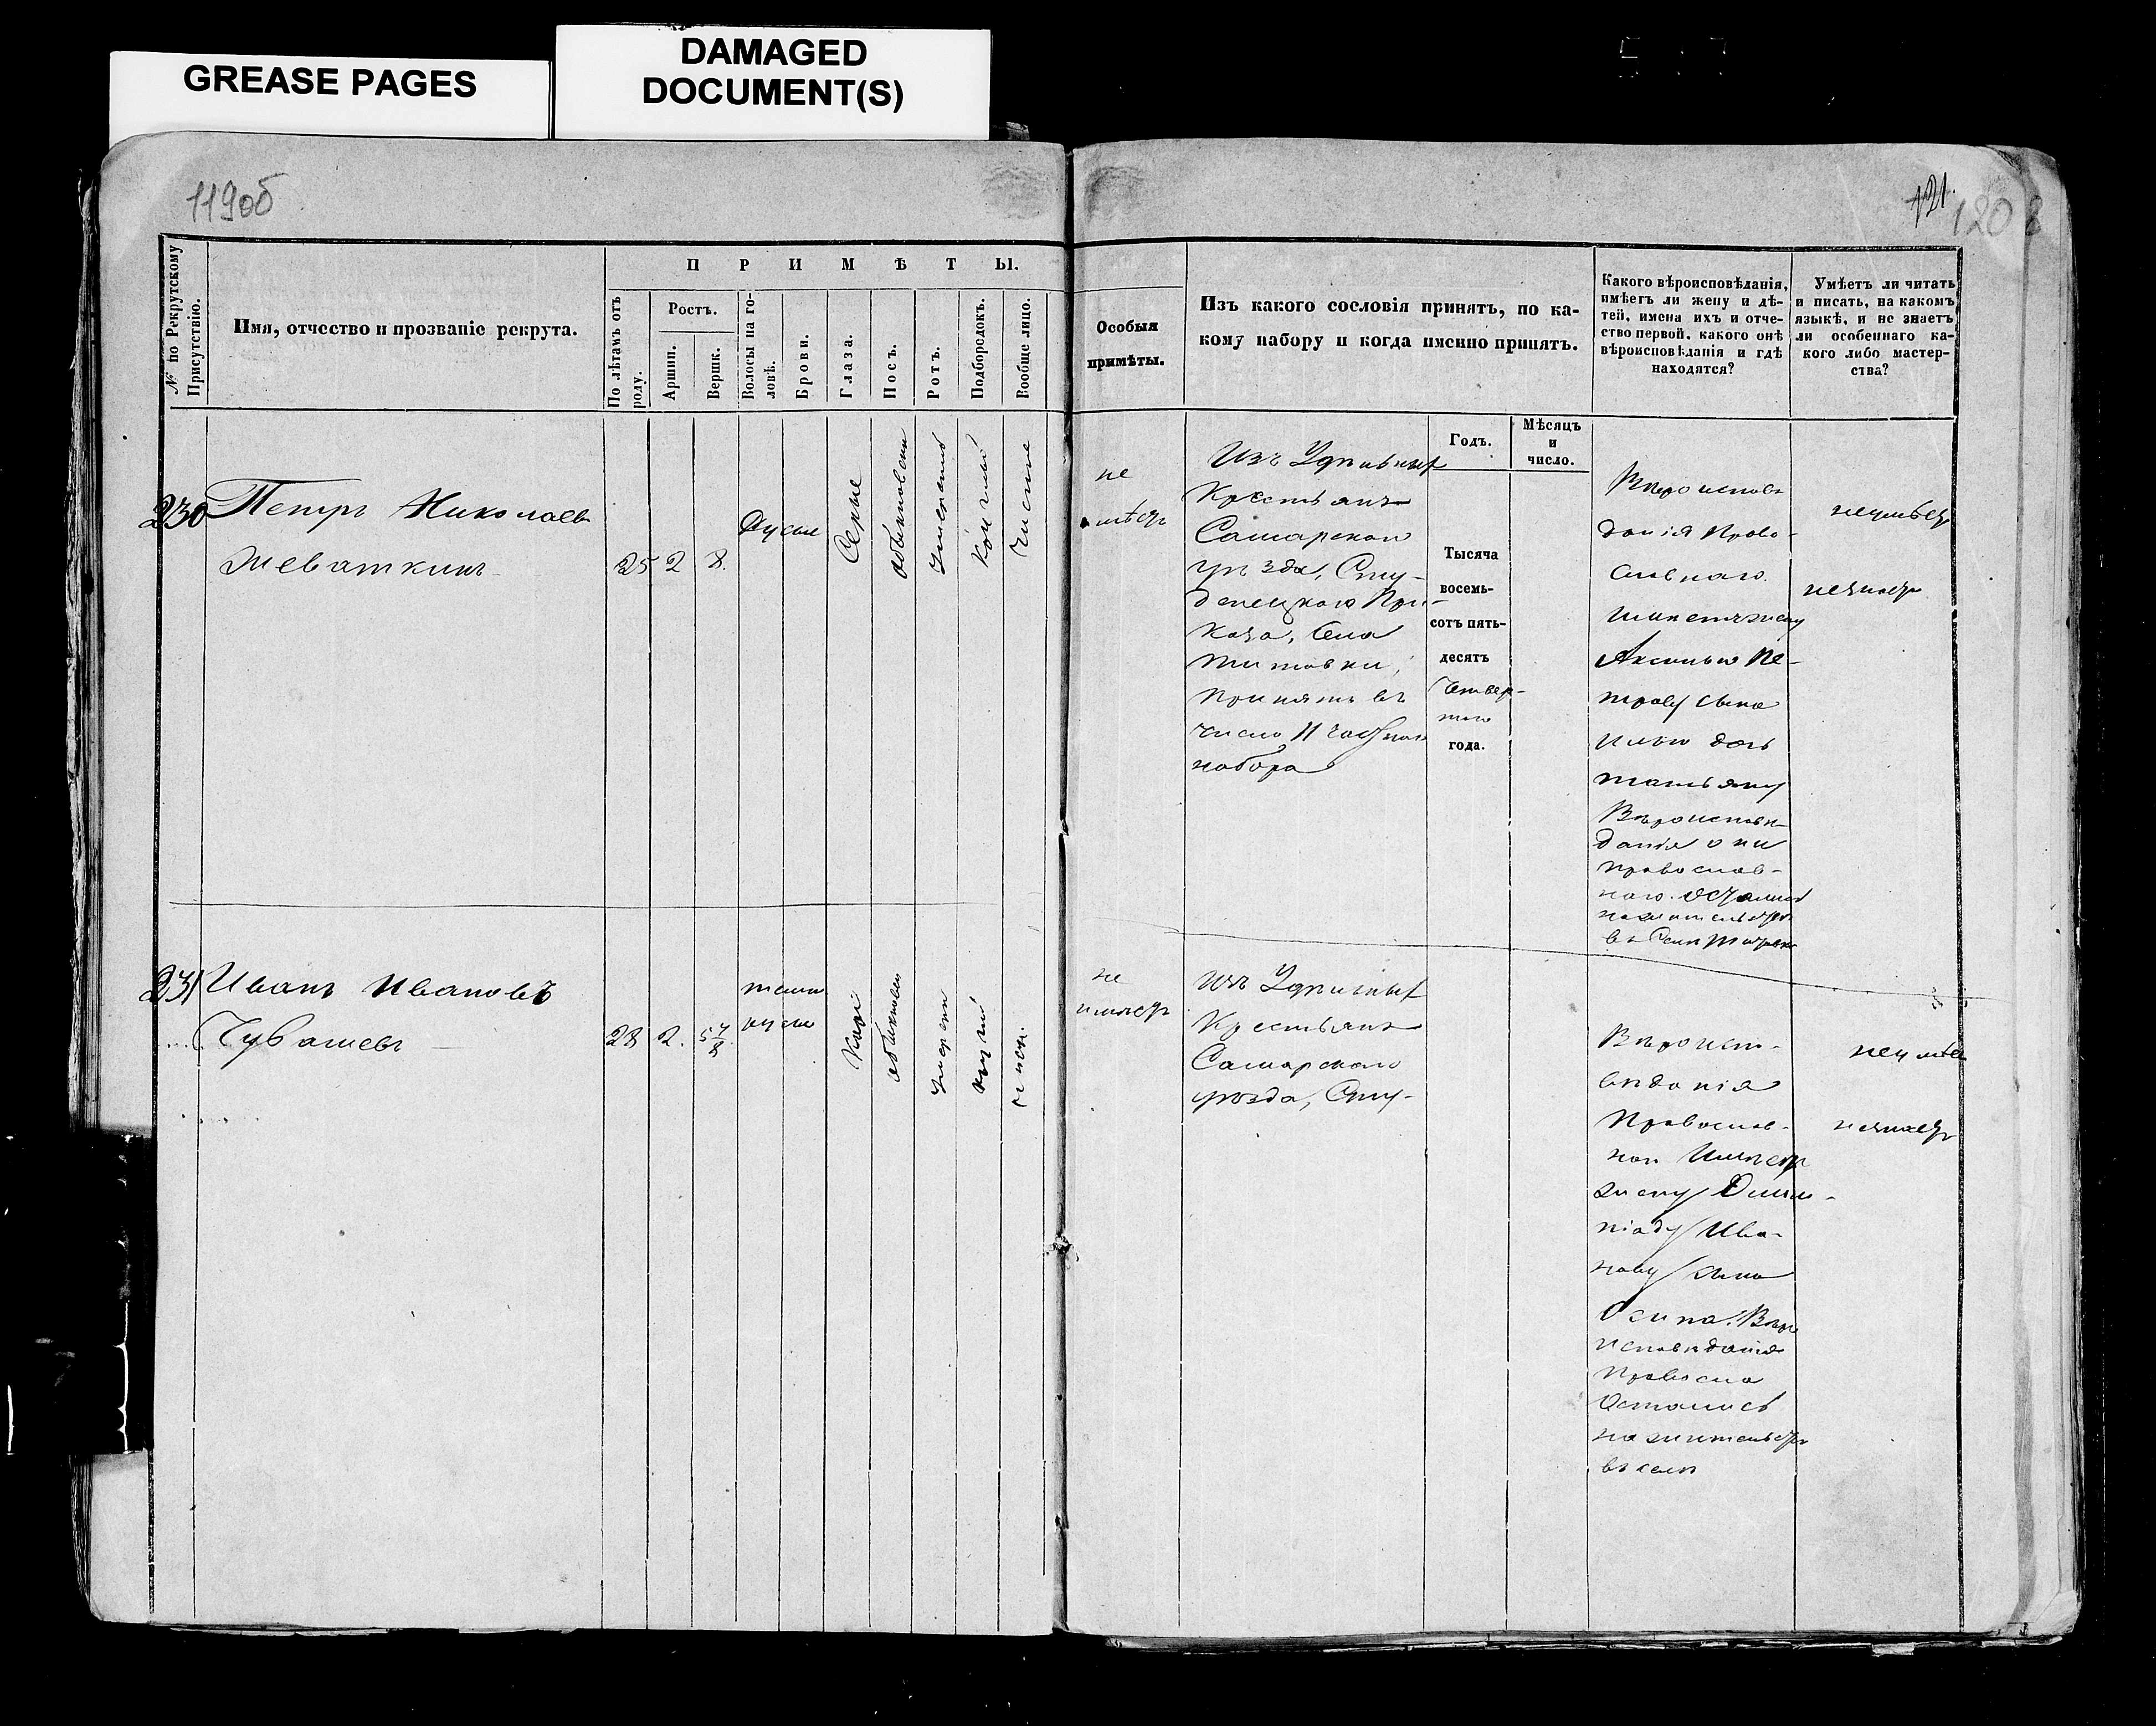 GREASE PAGES
DAMAGED
DOCUMENT(S)
119об
121.
120
№ по Рекрутскому
Присутствію.
Имя, отчество и прозваніе рекрута.
ПРИМѢТЫ.
По лѣтамъ отъ
роду.
Ростъ.
Аршин.
Вершк.
Волосы на го-
ловѣ.
Брови.
Глаза.
Носъ.
Ротъ.
Подбородокъ.
Вообще лицо.
Особыя
примѣты.
Изъ какого сословія принятъ, по ка-
кому набору и когда именно принятъ.
Годъ.
Мѣсяцъ
и
число.
Какого вѣроисповѣданія,
имѣетъ ли жену и дѣ-
тей, имена ихъ и отче-
ство первой, какого онѣ
вѣроисповѣданія и гдѣ
находятся?
Умѣетъ ли читать
и писать, на какомъ
языкѣ, и не знаетъ
ли особеннаго ка-
кого либо мастер-
ства?
230
Петръ Николаевъ
Шеваткинъ
25
2
8.
Русые
Серые
обыкновен
умерен
Чистое
не
имѣетъ
Изъ Удѣльныхъ
Крестьянъ
Самарскаго
уѣзда, Сту-
денецкаго При-
каза, Села
Титовки,
Принятъ въ
число 11 частнаго
набора
Тысяча
восемь-
сотъ пять-
десятъ
Четвер-
таго
года.
Вѣроиспов
данія Право-
славнаго
имѣетъ жену
Аксинью Пе-
трову сына
Илью дочь
Татьяну
Вѣроисповѣ-
данія они
православ-
наго. Остались
на жительстве
въ Селѣ Титовке
неумѣетъ
незнаетъ
231
Иванъ Ивановъ
Чувашевъ
28
2.
5 7/8
темно
русые
Каріе
обыкновен
умерен
чистое
не
имѣетъ
Изъ Удѣльныхъ
Крестьянъ
Самарскаго
уѣзда, Сту-
Вѣроиспо-
вѣданія
Православ-
наго Имѣетъ
жену Олим-
піаду Ива-
нову сына
Осипа. Вѣро
исповѣданія
Правосла
Остались
на жительстве
въ селѣ
неумѣет
незнаетъ